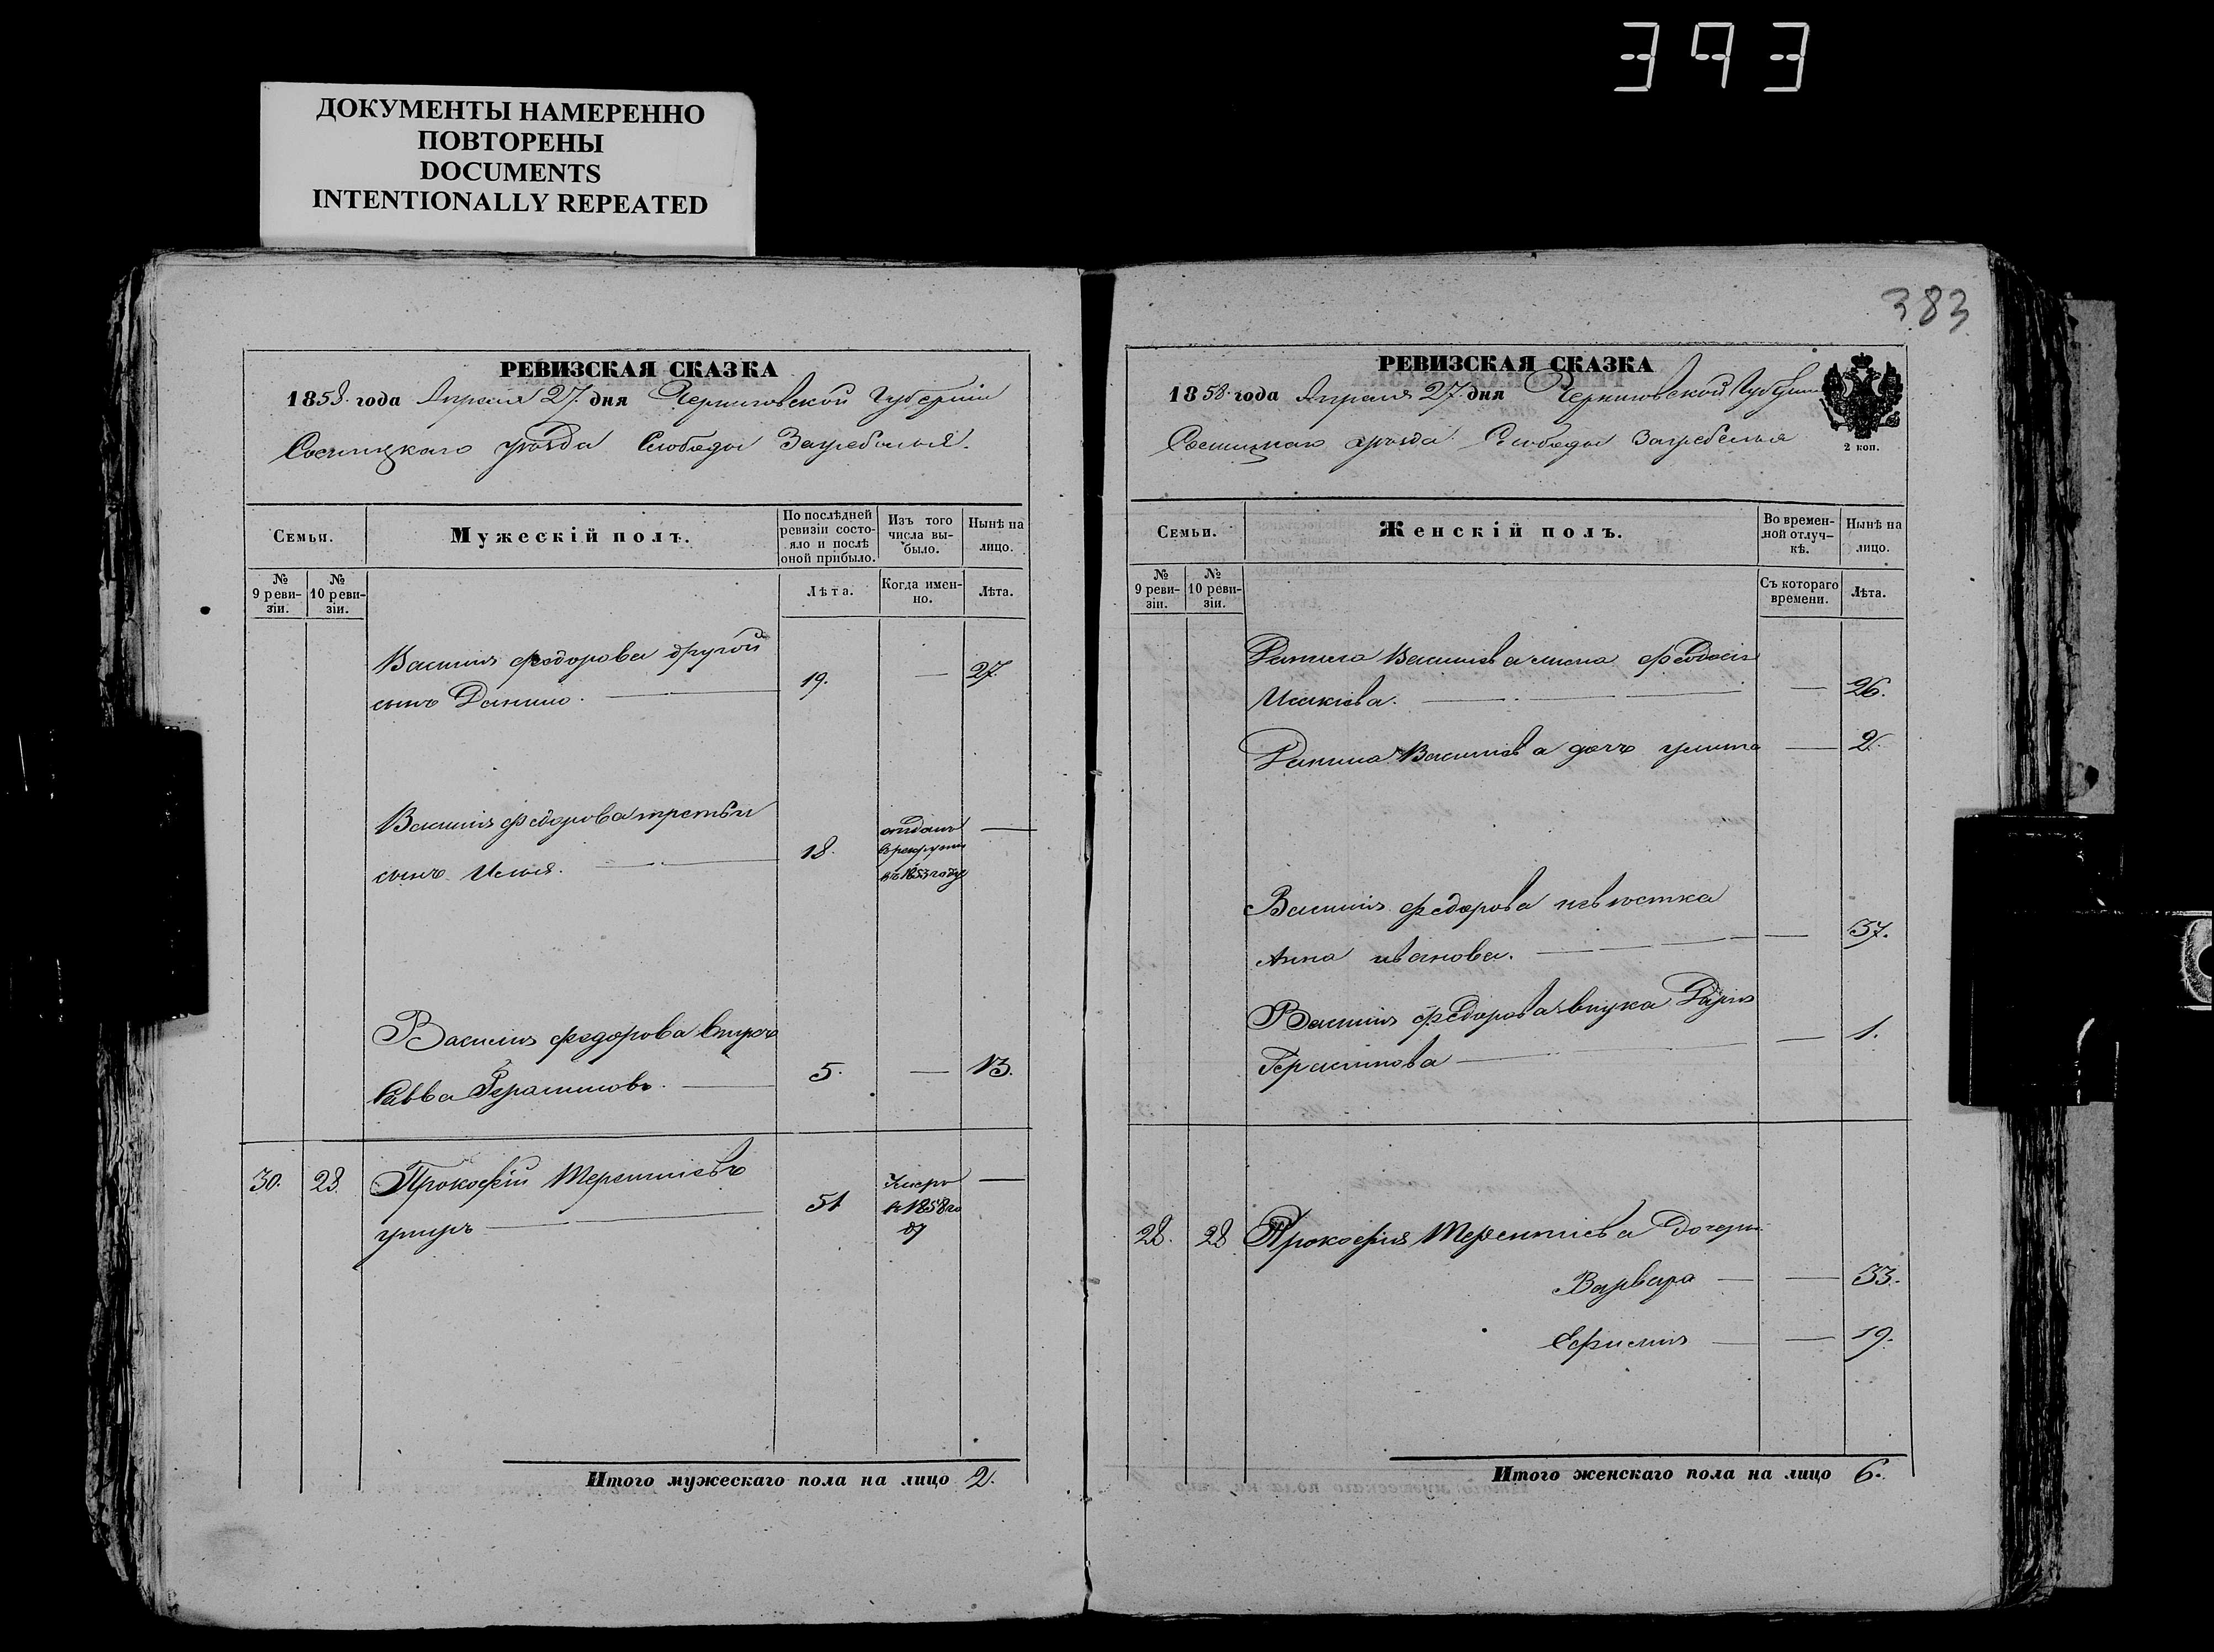 393
ДОКУМЕНТЫ НАМЕРЕННО
ПОВТОРЕНЫ
DOCUMENTS
INTENTIONALLY REPEATED
РЕВИЗСКАЯ СКАЗКА
1858. года Апреля 27. дня Черниговской Губерніи
Сосницкаго уѣзда Слободы Загребелья.
Семьи.
Мужескій полъ.
По послѣдней
ревизіи состо-
яло и послѣ
оной прибыло.
Изъ того
числа вы-
было.
Нынѣ на
лицо.
№
9 реви-
зіи.
№
10 реви-
зіи.
Лѣта.
Когда имен-
но.
Лѣта.
Василія федорова другой
сынъ Данило. 19. — 27.
Василія федорова третьи
сынъ Илья. 18. отданъ
в рекруты
въ 1853 году —
Василія федорова внукъ
Савва Герасимовъ. 5. — 13.
30. 28. Прокофій Терентіевъ
умеръ 51 Умеръ
в 1858 го
ду —
Итого мужескаго пола на лицо 2.
383
РЕВИЗСКАЯ СКАЗКА
1858. года Апреля 27. дня Черниговской Губерніи
Сосницкаго уѣзда Слободы Загребелья
2 коп.
Семьи.
Женскій полъ.
Во времен-
ной отлуч-
кѣ.
Нынѣ на
лицо.
№
9 реви-
зіи.
№
10 реви-
зіи.
Съ котораго
времени.
Лѣта.
Данила Василіева жена феодосія
Исакіева. — 26.
Данила Василіева дочь улита — 2.
Василія федорова невѣстка
Анна иванова. — 37.
Василія федорова внука
Герасимова — 1.
28. 28 Прокофія Терентіева дочери
Варвара — 33.
Ефимія — 19.
Итого женскаго пола на лицо 6.